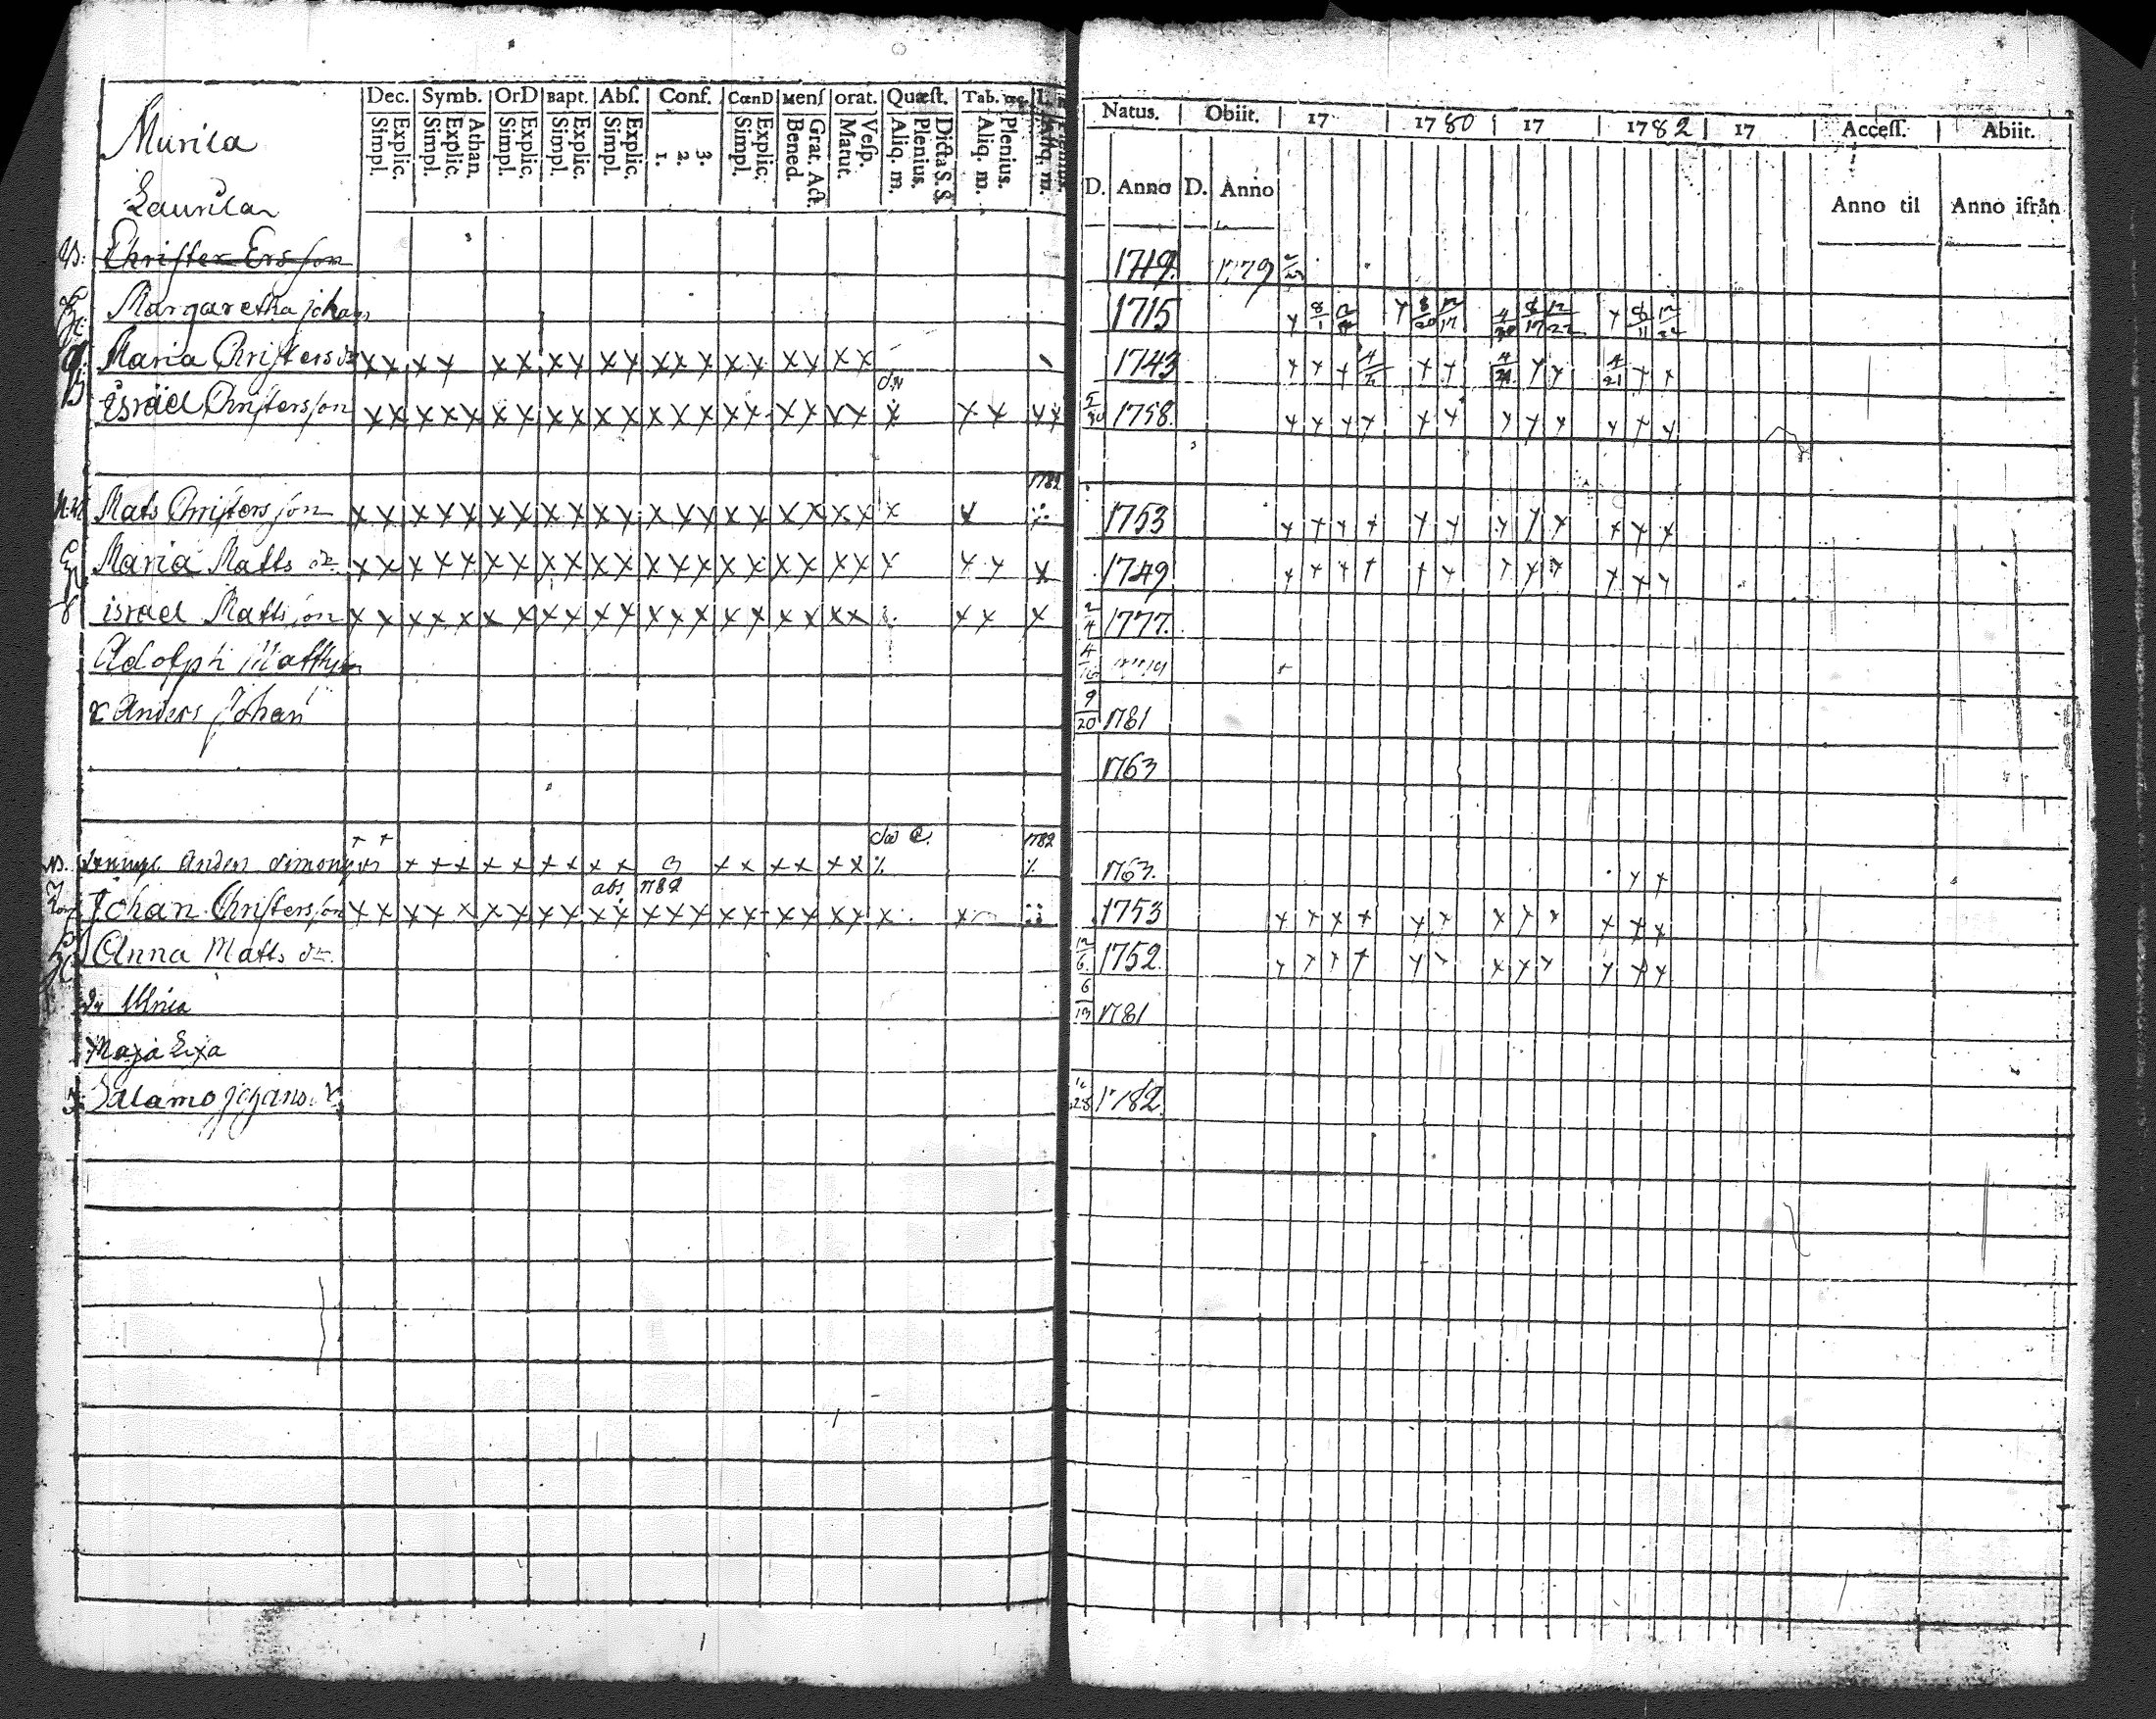 Murila
Laurila
Dec. Symb. OrD Bapt. Abſ. Conf. CœnD Menſ orat. Quæſt. Tab. œc.
Explic. Simpl. Athan. Explic. Simpl. Explic. Simpl. Explic. Simpl. Explic. Simpl. 3. 2. 1. Explic. Simpl. Grat. Act Bened. Veſp. Matut. Dicta S. S Plenius. Aliq. m. Plenius. Aliq. m. Plenius. Aliq. m.
Natus. Obiit. 17 1780 17 1782 17 Acceſſ. Abiit.
D. Anno D. Anno Anno til Anno ifrån
Chriſter Ersſon 1719. 1779
Margaretha Johans 1715 y 8/1 y 8/20 12/17 8/17 12/22 y 8/11 12/22
Maria Chriſters dr x x x x x x x x x x x x x x x x x x x 1743 y y y y y y y 4/21 y y
israel Chriſtersſon x x x x x x x x x x x x x x x x x x x x x x x x x 5/30 1758. y y y y y y y y y y y y
1782
Mats Chriſtersſon x x x x x x x x x x x x x x x x x x x x x x 1753 y y y y y y y y y y y y
Maria Matts dr. x x x x x x x x x x x x x x x x x x x x y y y x 1749 y y y y y y y y y y y y
israel Mattsſon x x x x x x x x x x x x x x x x x x x x x x x 2/4 1777.
Adolph Mattsſon 4/16
x Anders Johan 9/20 1781
1763
+ + 1782
Anders Simonsſon x x x x x x x x x x x x x x x 1763. y y
abs 1782
Johan Chriſtersſon x x x x x x x x x x x x x x x x x x x x x x 1753 y y y y y y y y y y y y
Anna Matts dr. 12/6 1752. y y y y y y y y y y y
Ulrica 6/13 1781
Maja Lisa
Salamo Johans. 1782.